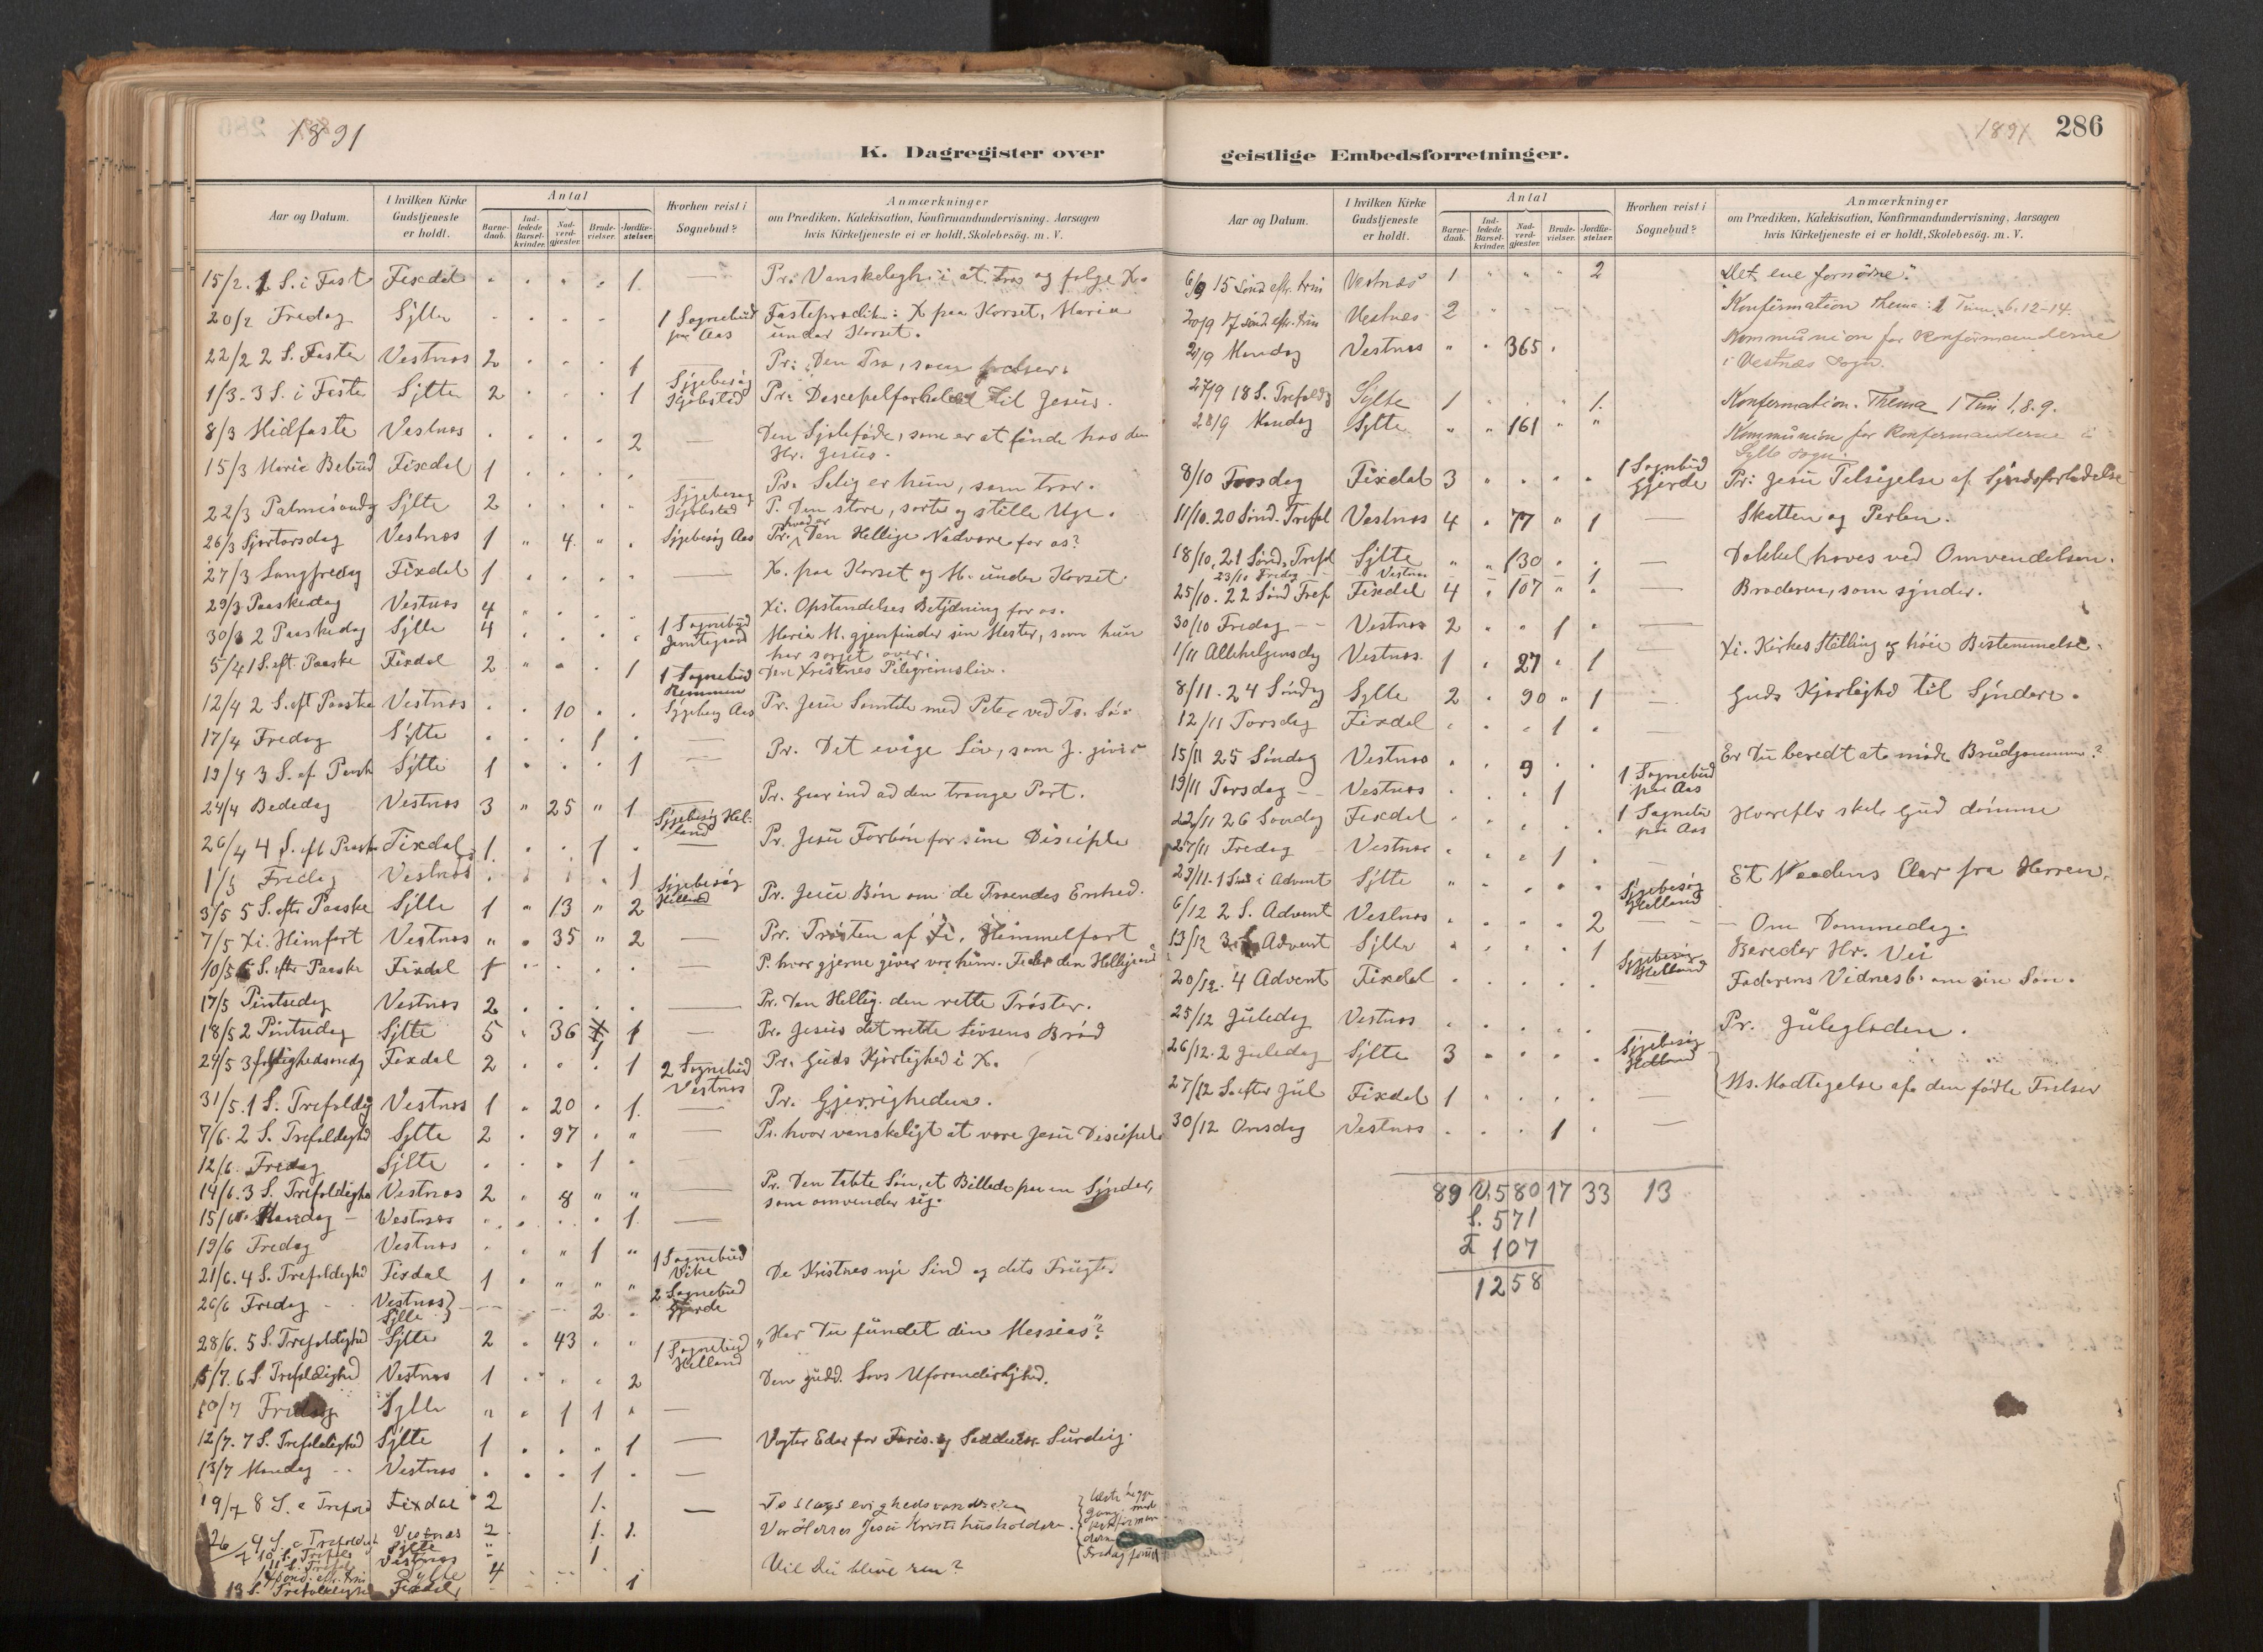 1891
K. Dagregister over
Aar og Datum.
I hvilken Kirke Gudstjeneste er holdt.
Antal
Barnedaab.
Indledede Barselkvinder.
Nadverdgjæster.
Brudevielser.
Jordfæstelser.
Hvorhen reist i Sognebud?
Anmærkninger
om Prædiken, Katekisation, Konfirmandundervisning, Aarsagen
hvis Kirketjeneste ei er holdt, Skolebesög. m. V.
15/2. 1 S. i Fast Fixdal " " " " 1. — Pr. Vanskeligh. i at tro og følge X.
20/2 Fredag Sylte 1 Sognebud paa Aas Fasteprædik: X paa Korset, Maria
under Korset.
22/2 2 S. Faste Vestnæs 2 " " " 1 Pr: Den Tro, som frelser.
1/3. 3 S. i Faste Sylte 2 " " " 1 Sygebesøg Pr: Discipelforholdet til Jesus.
8/3 Midfaste Vestnæs " " " " 2 — Den Sjeleføde, som er at finde hos den
Hr. Jesus.
15/3 Mariæ Bebud Fixdal 1 " " " " Pr. Salig er hun, som tror.
22/3 Palmesøndg Sylte 2 " " " " Sygebesøg P. Den store, sorte og stille Uge.
26/3 Skjærtorsdag Vestnæs 1 " 4 " " Sygebesøg Aas Pr. hvad er Den Hellige Nadvere for os?
27/3 Langfredag Fixdal 1 " " " " — X. paa Korset og M. under Korset.
29/3 Paaskedag Vestnæs 4 " " " " Xi. Opstandelses Betydning for os.
30/3 2 Paaskedag Sylte 4 " " " " 1 Sognebud Maria M. gjenfinder sin Mester, som hun
har sørget over.
5/4 1 S. eft. Paaske Fixdal 2 " " " 1 1 Sognebud Den Kristnes Pilegrimsliv.
12/4 2 S. eft Paaske Vestnæs " " 10 " " Sygebesøg Aas Pr. Jesu Samtale med Peter ved Ti. Sø.
17/4 Fredag Sylte " " " 1 " —
19/4 3 S. ef. Paask Sylte 1 " " " 1 — Pr. Det evige Liv, som J. giver
24/4 Bededag Vestnæs 3 " 25 " 1 Pr. Gaar ind ad den trange Port.
26/4 4 S. eft Paaske Fixdal 1. " " 1 " Sygebesøg Helland Pr. Jesu Forbøn for sine Disciple
1/5 Fredag Vestnæs " " " " 1
3/5 5 S. efter Paaske Sylte 1 " 13 " 2 Sygebesøg Helland Pr. Jesu Bøn om de Troendes Enhed.
7/5 Xi. Himfart Vestnæs " " 35 " 2 — Pr. Trøsten af Xi. Himmelfart
10/5 6 S. efter Paaske Fixdal 1 " " " " — P. hvor gjerne giver vor himm. Fader den Helligaand
17/5 Pintsedag Vestnæs 2 " " " " — Pr. Den Hellig. den rette Trøster.
18/5 2 Pintsedag Sylte 5 " 36 1 1 — Pr. Jesus det rette Livsens Brød
24/5 3foldighedsøndg Fixdal 2 " " " 1 2 Sognebud Vestnæs Pr. Guds Kjærlighed i X.
31/5. 1 S. Trefoldig Vestnæs 1 " 20 " 1. — Pr. Gjerrigheden.
7/6. 2 S. Trefoldighd Sylte 2 " 97 " " — Pr. hvor vanskeligt at være Jesu Discipel
12/6 Fredag Sylte " " " 1 " —
14/6. 3 S. Trefoldighe Vestnæs 2 " 8 " " — Pr. Den tabte Søn, et Billede paa en Synder,
som omvender sig.
15/6 Mandag — Vestnæs " " " " 1. —
19/6 Fredag Vestnæs " " " 1 "
21/6. 4 S. Trefoldighd Fixdal 1 " " " " 1 Sognebud Vike De Kristnes nye Sind og dets Frugter
26/6 Fredag Vestnæs Sylte 2 " 2 Sognebud Gjerde
28/6. 5 S. Trefoldighed Sylte 2 " 43 " " 1 Sognebud Helland „Har Du fundet din Messias"?
5/7. 6 S. Trefoldighed Vestnæs 1 " " " 2 Den gudd. Lovs Uforanderlighed.
10/7 Fredag Sylte " " 1 1 " —
12/7. 7 S. Trefoldighed Sylte 1 " " " 1 — Vogter Eder for Faris. og Sadduk. Surdeig.
13/7 Mandag Vestnæs " " " 1 " —
19/7 8 S. e Trefold Fixdal 2 1. — To slags evighedsvandrere
26/7 9 S. e Trefoldigh Vestnæs 2 1. 1. Vor Herres Jesu Kristi husholdere.
10 S. Trefold Sylte " 1
11 S. Trefol Vestnæs
Sylte 4 Vil Du blive ren?
13 S. Trefoldighed Fixdal 1
1891
286
geistlige Embedsforretninger.
Aar og Datum.
I hvilken Kirke Gudstjeneste er holdt.
Antal
Barnedaab.
Indledede Barselkvinder.
Nadverdgjæster.
Brudevielser.
Jordfæstelser.
Hvorhen reist i Sognebud?
Anmærkninger
om Prædiken, Katekisation, Konfirmandundervisning, Aarsagen
hvis Kirketjeneste ei er holdt, Skolebesög. m. V.
6/9 15 Sønd eftr. trin Vestnæs 1 " " " 2 „Det ene fornødne".
20/9 17 Sønd. eftr. trin Vestnæs 2 " " " Konfirmation Thema: 1 Tim. 6. 12-14.
21/9 Mandag Vestnæs " " 365 " Kommunion for Konfirmanderne
i Vestnæs Sogn.
27/9 18 S. Trefoldg Sylte 1 " " " 1. Konfirmation. Thema 1 Tim 1. 8. 9.
28/9 Mandag Sylte " " 161 " " Kommunion for Konfirmanderne i
Sylte Sogn.
8/10 Torsdag Fixdal 3 " " " " 1 Sognebud Gjerde Pr: Jesu Tilsigelse af Syndsforladelse
11/10. 20 Sønd. Trefol Vestnæs 4 " 77 " 1 — Skatten og Perlen.
18/10. 21 Sønd. Trefol Sylte " " 130 " " — Dobbel haves ved Omvendelsen.
23/10 Fredag Vestnæs 1
25/10. 22 Sønd Tref Fixdal 4 " 107 " " — Broderen, som synder.
30/10 Fredag Vestnæs 2 " " 1 " —
1/11 Allehelgensdg Vestnæs. 1 " 27 " 1 — Xi. Kirkes Stilling og høie Bestemmelse.
8/11. 24 Søndag Sylte 2 " 90 " 1 — Guds Kjærlighd til Syndere.
12/11 Torsdag Fixdal " " " 1 " —
15/11 25 Søndag Vestnæs " " 9 " " 1 Sognebud paa Aas Er Du beredt at møde Brudgommen?
19/11 Torsdag Vestnæs " " " 1
22/11 26 Søndag Fixdal " " " " " 1 Sognebu paa Aas Hvorefter skal Gud dømme
27/11 Fredag Vestnæs " " " 1 " —
29/11. 1 Sønd i Advent Sylte " " " " " Sygebesøg Helland Et Naadens Aar fra Herren.
6/12 2 S. Advent Vestnæs " " " " 2 — Om Dommedag.
13/12 3 S. Advent Sylte " " " " 1 Sygebesøg Helland Bereder Hr. Vei
20/12. 4 Advent Fixdal " " " " " — Faderens Vidnesb. om sin Søn.
25/12 Juledag Vestnæs " " " " " Pr. Juleglæden.
26/12. 2 Juledag Sylte 3 " " " " Sygebesøg Helland
27/12 S. efter Jul Fixdal 1 " " " " — Ms. Modtagelse af den fødte Frelser
30/12 Onsdag Vestnæs " " " 1 " —
89 V. 580 17 33 13
S. 571
F 107
1258